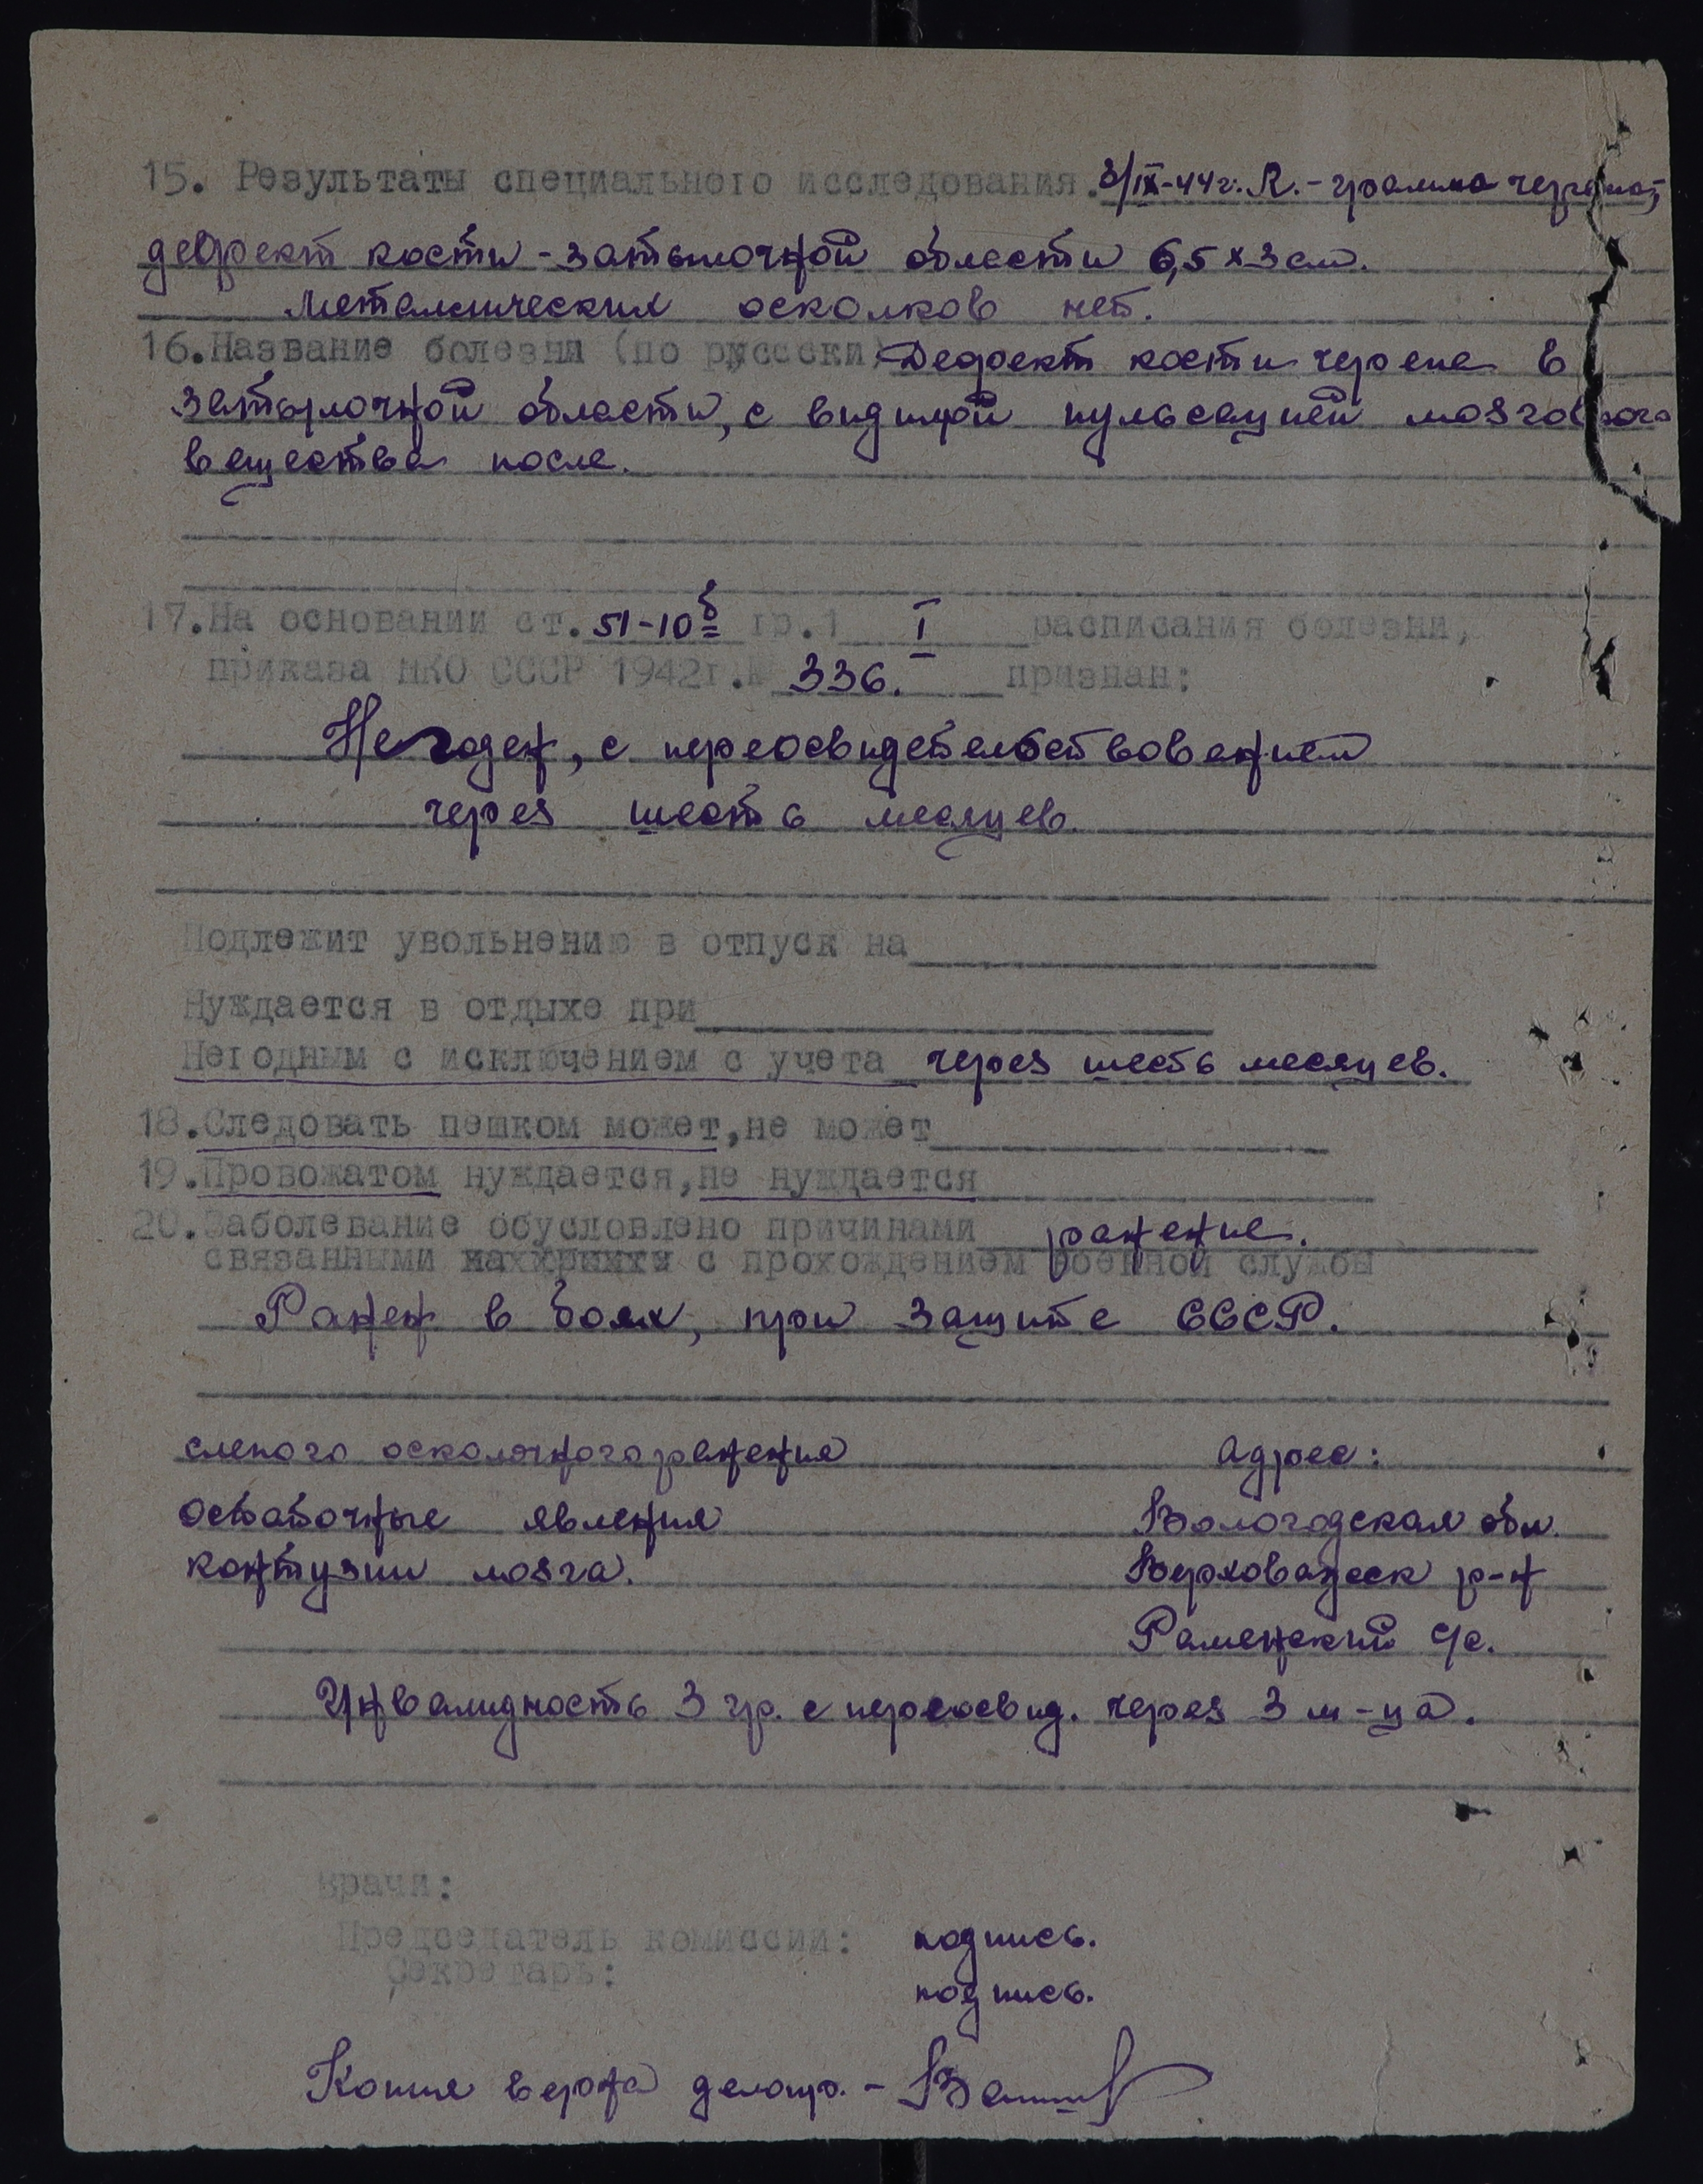 15. Результаты специального исследования. 8/IX-44г. R.-грамма черепа;
дефект кости - затылочной области 6,5 x 3 см.
Металлических осколков нет.
16. Название болезни (по русски) Дефект кости черепа в
затылочной области, с видимой пульсацией мозгового
вещества после.
17. На основании ст. 51-10б гр. 1 I расписания болезни,
приказа НКО СССР 1942г. № 336. признан:
Не годен, с переосвидетельствованием
через шесть месяцев.
Подлежит увольнению в отпуск на
Нуждается в отдыхе при
Негодным с исключением с учета через шесть месяцев.
18. Следовать пешком может, не может
19. Провожатом нуждается, не нуждается
20. Заболевание обусловлено причинами ранение.
связанными с прохождением военной службы
Ранен в боях, при защите СССР.
слепого осколочного ранения Адрес:
остаточные явления Вологодская обл.
контузии мозга. Верховажск р-н
Раменский с/с.
Инвалидность 3 гр. с переосвид. через 3 м-ца.
Врачи:
Председатель комиссии: подпись.
Секретарь:
подпись.
Копия верна делопр. -